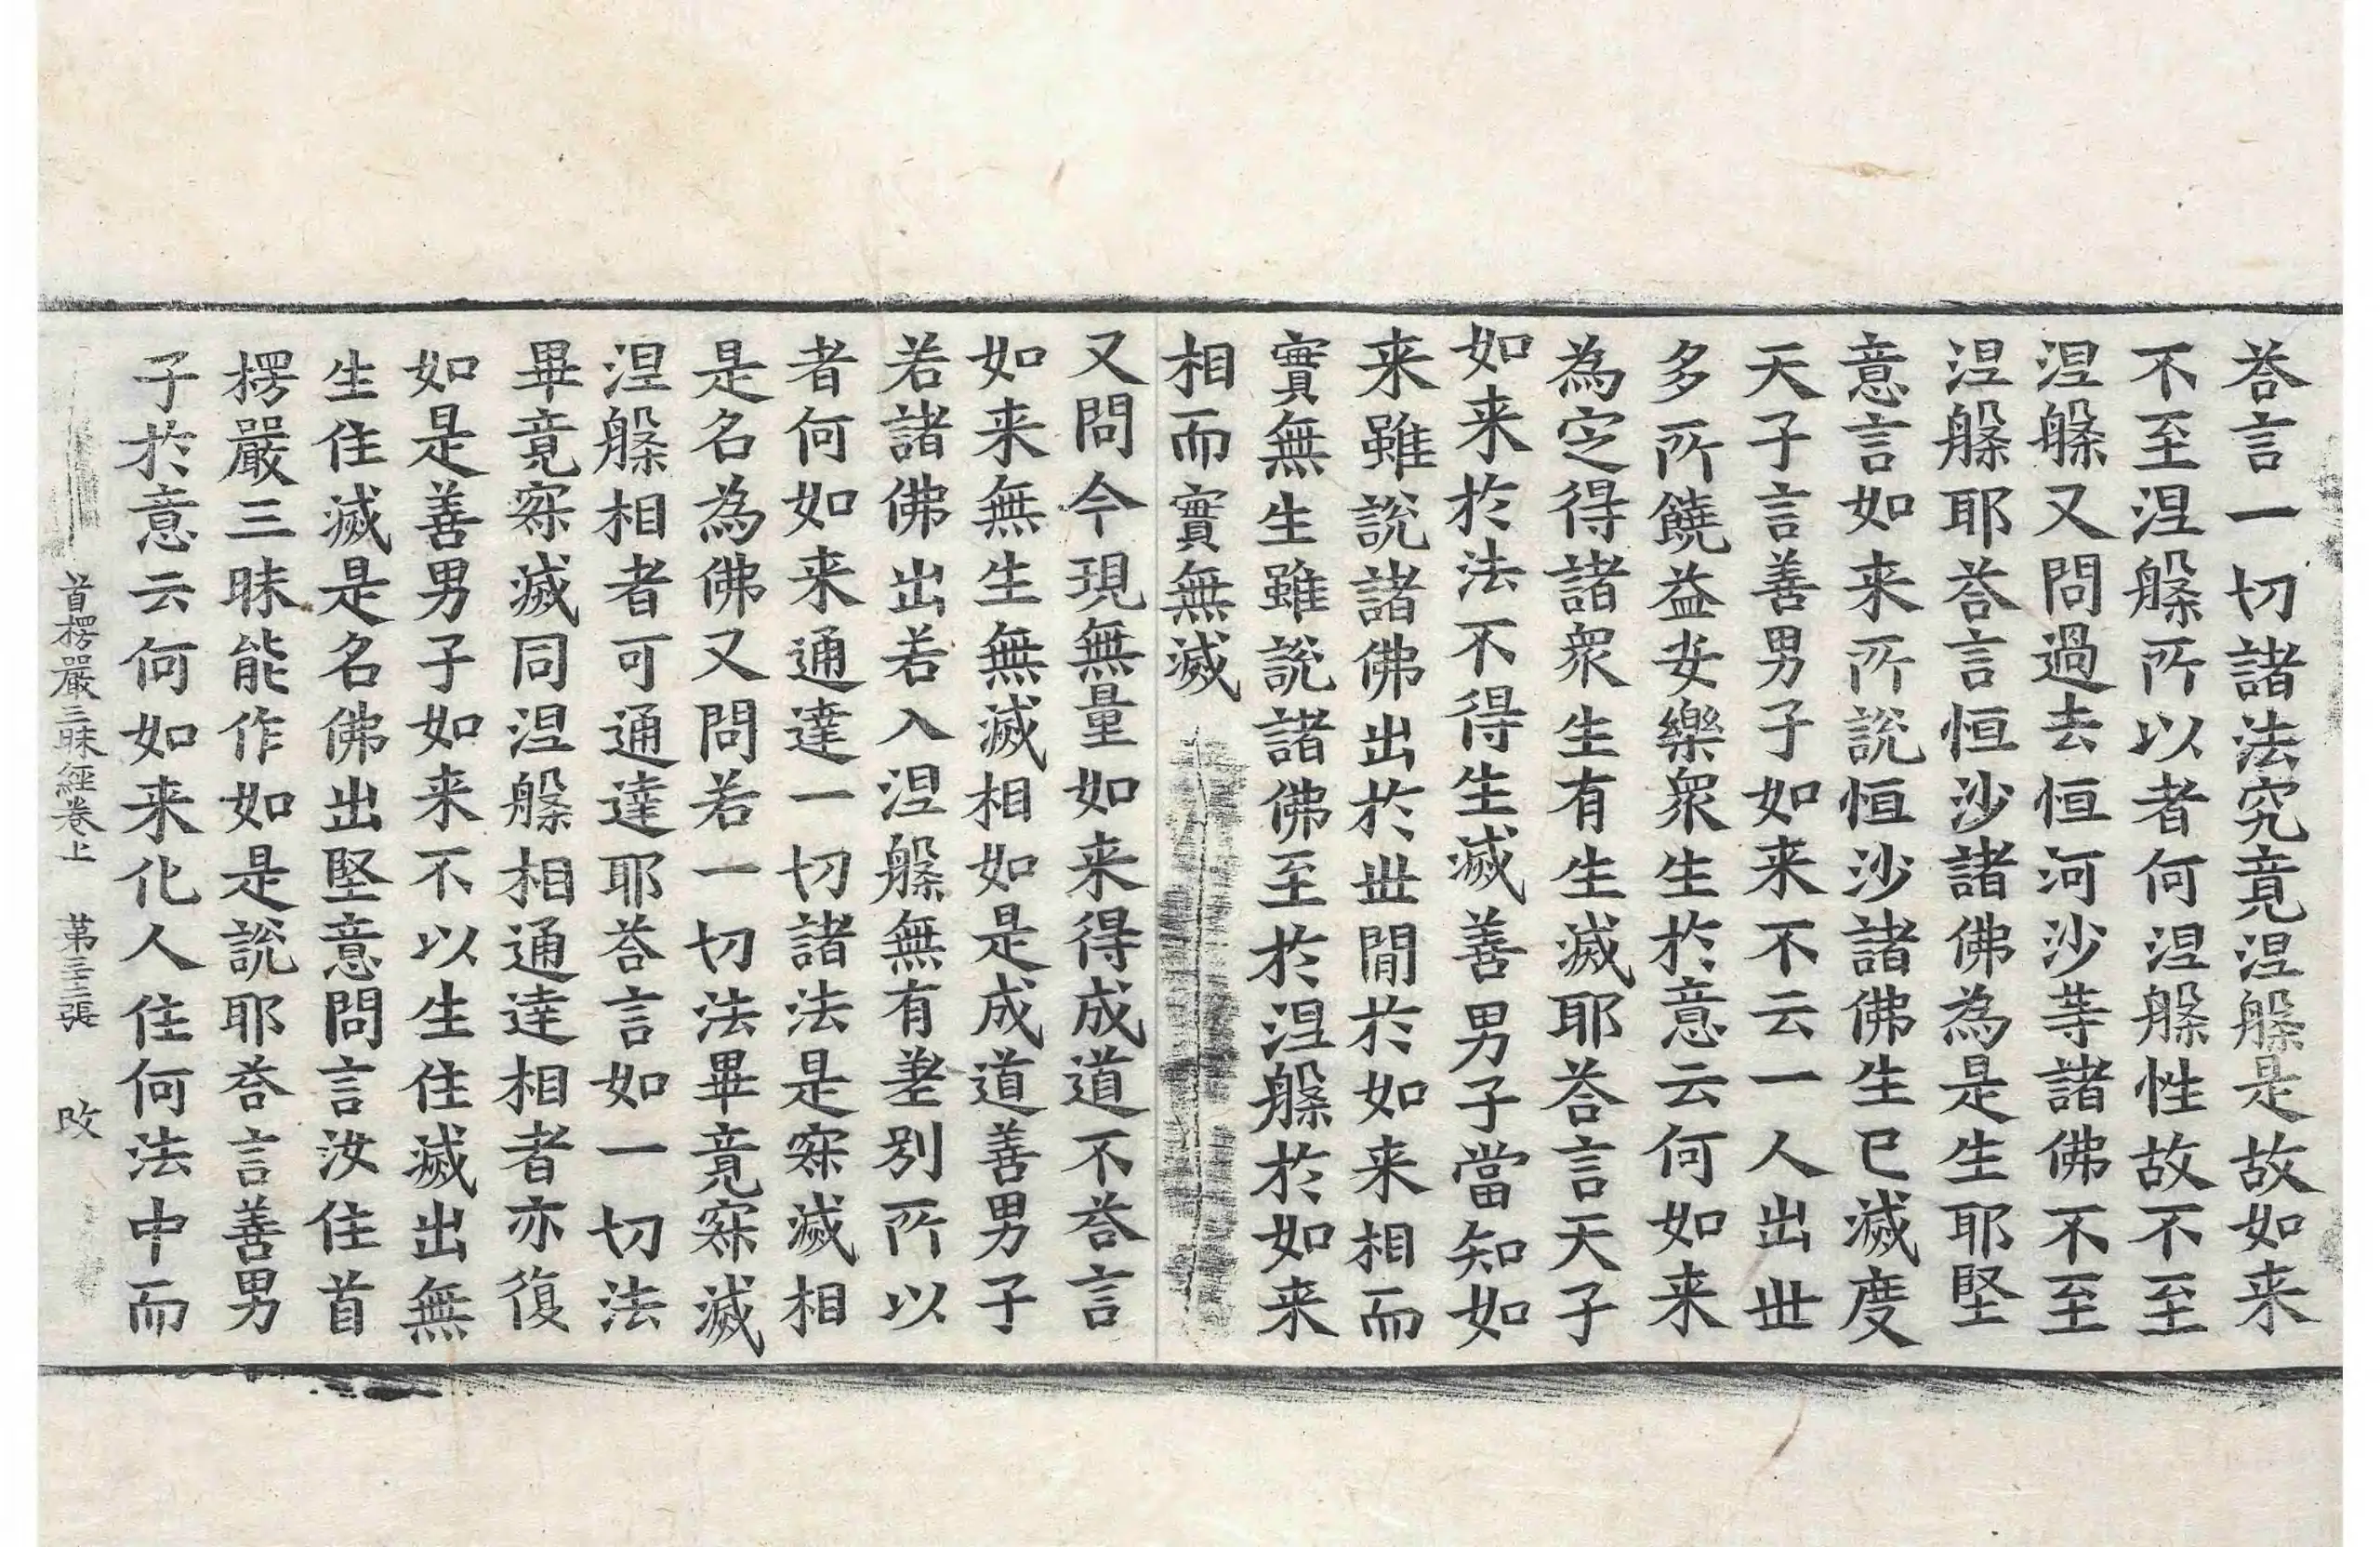 荅言一切諸法究竟涅槃是故如来
不至涅槃所以者何涅槃性故不至
涅槃又問過去恒河沙等諸佛不至
涅槃耶荅言恒沙諸佛為是生耶堅
意言如来所說恒沙諸佛生已滅度
天子言善男子如来不云一人出世
多所饒益安樂衆生於意云何如来
為定得諸衆生有生滅耶荅言天子
如来於法不得生滅善男子當知如
来雖說諸佛出於世閒於如来相而
實無生雖說諸佛至於涅槃於如来
相而實無滅
又問今現無量如来得成道不荅言
如来無生無滅相如是成道善男子
若諸佛出若入涅槃無有差別所以
者何如来通達一切諸法是寂滅相
是名為佛又問若一切法畢竟寂滅
涅槃相者可通達耶荅言如一切法
畢竟寂滅同涅槃相通達相者亦復
如是善男子如来不以生住滅出無
生住滅是名佛出堅意問言汝住首
楞嚴三昧能作如是說耶荅言善男
子於意云何如来化人住何法中而
首楞嚴三昧經卷上 第三二張 改